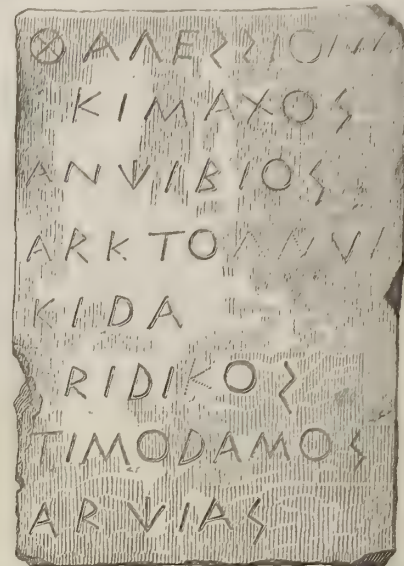 ΘΑΛΕΣΣΙΟ
ΚΙΜΑΧΟΣ
ΑΝΨΙΒΙΟΣ
ΑΡΚΤΟ
ΚΙΔΑ
ΡΙΔΙΚΟΣ
ΤΙΜΟΔΑΜΟΣ
ΑΡΨΙΑΣ